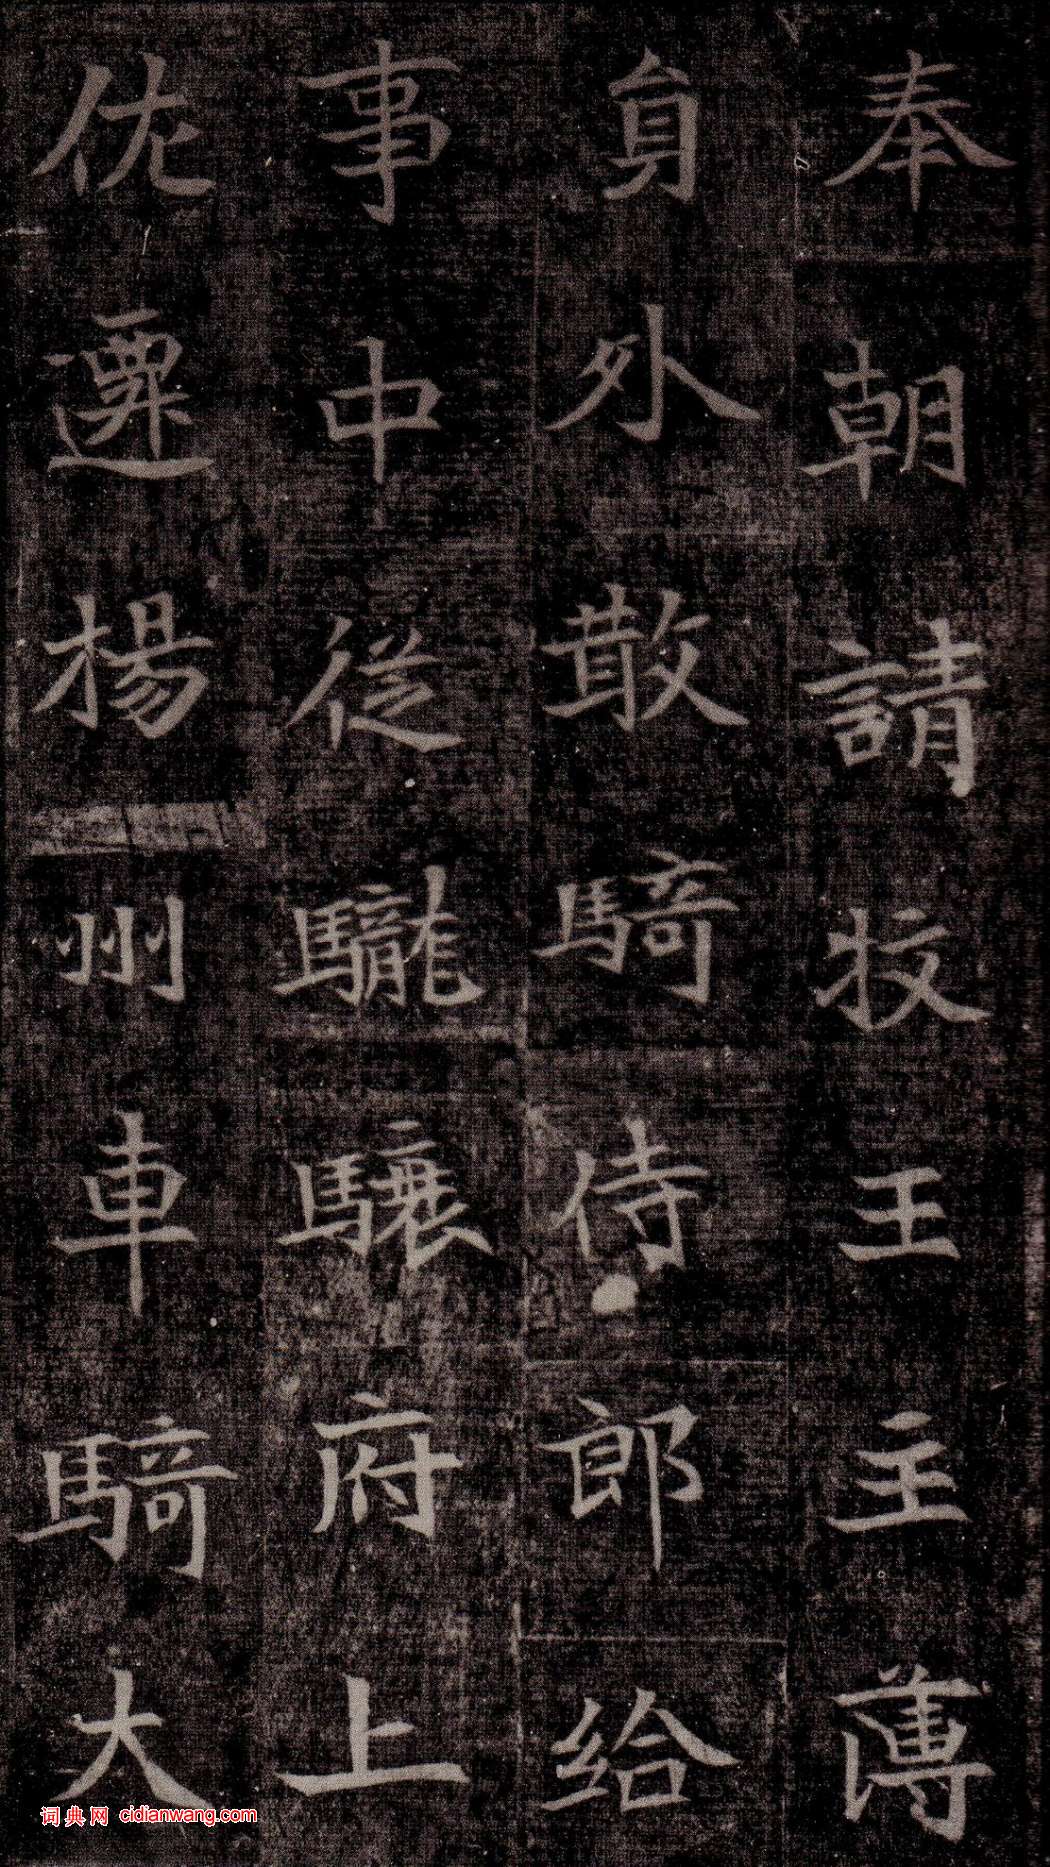 奉朝請校王主薄
員外散騎侍郎給
事中從驤驤府上
佐遷揚州車騎大
词典网 cidianwang.com